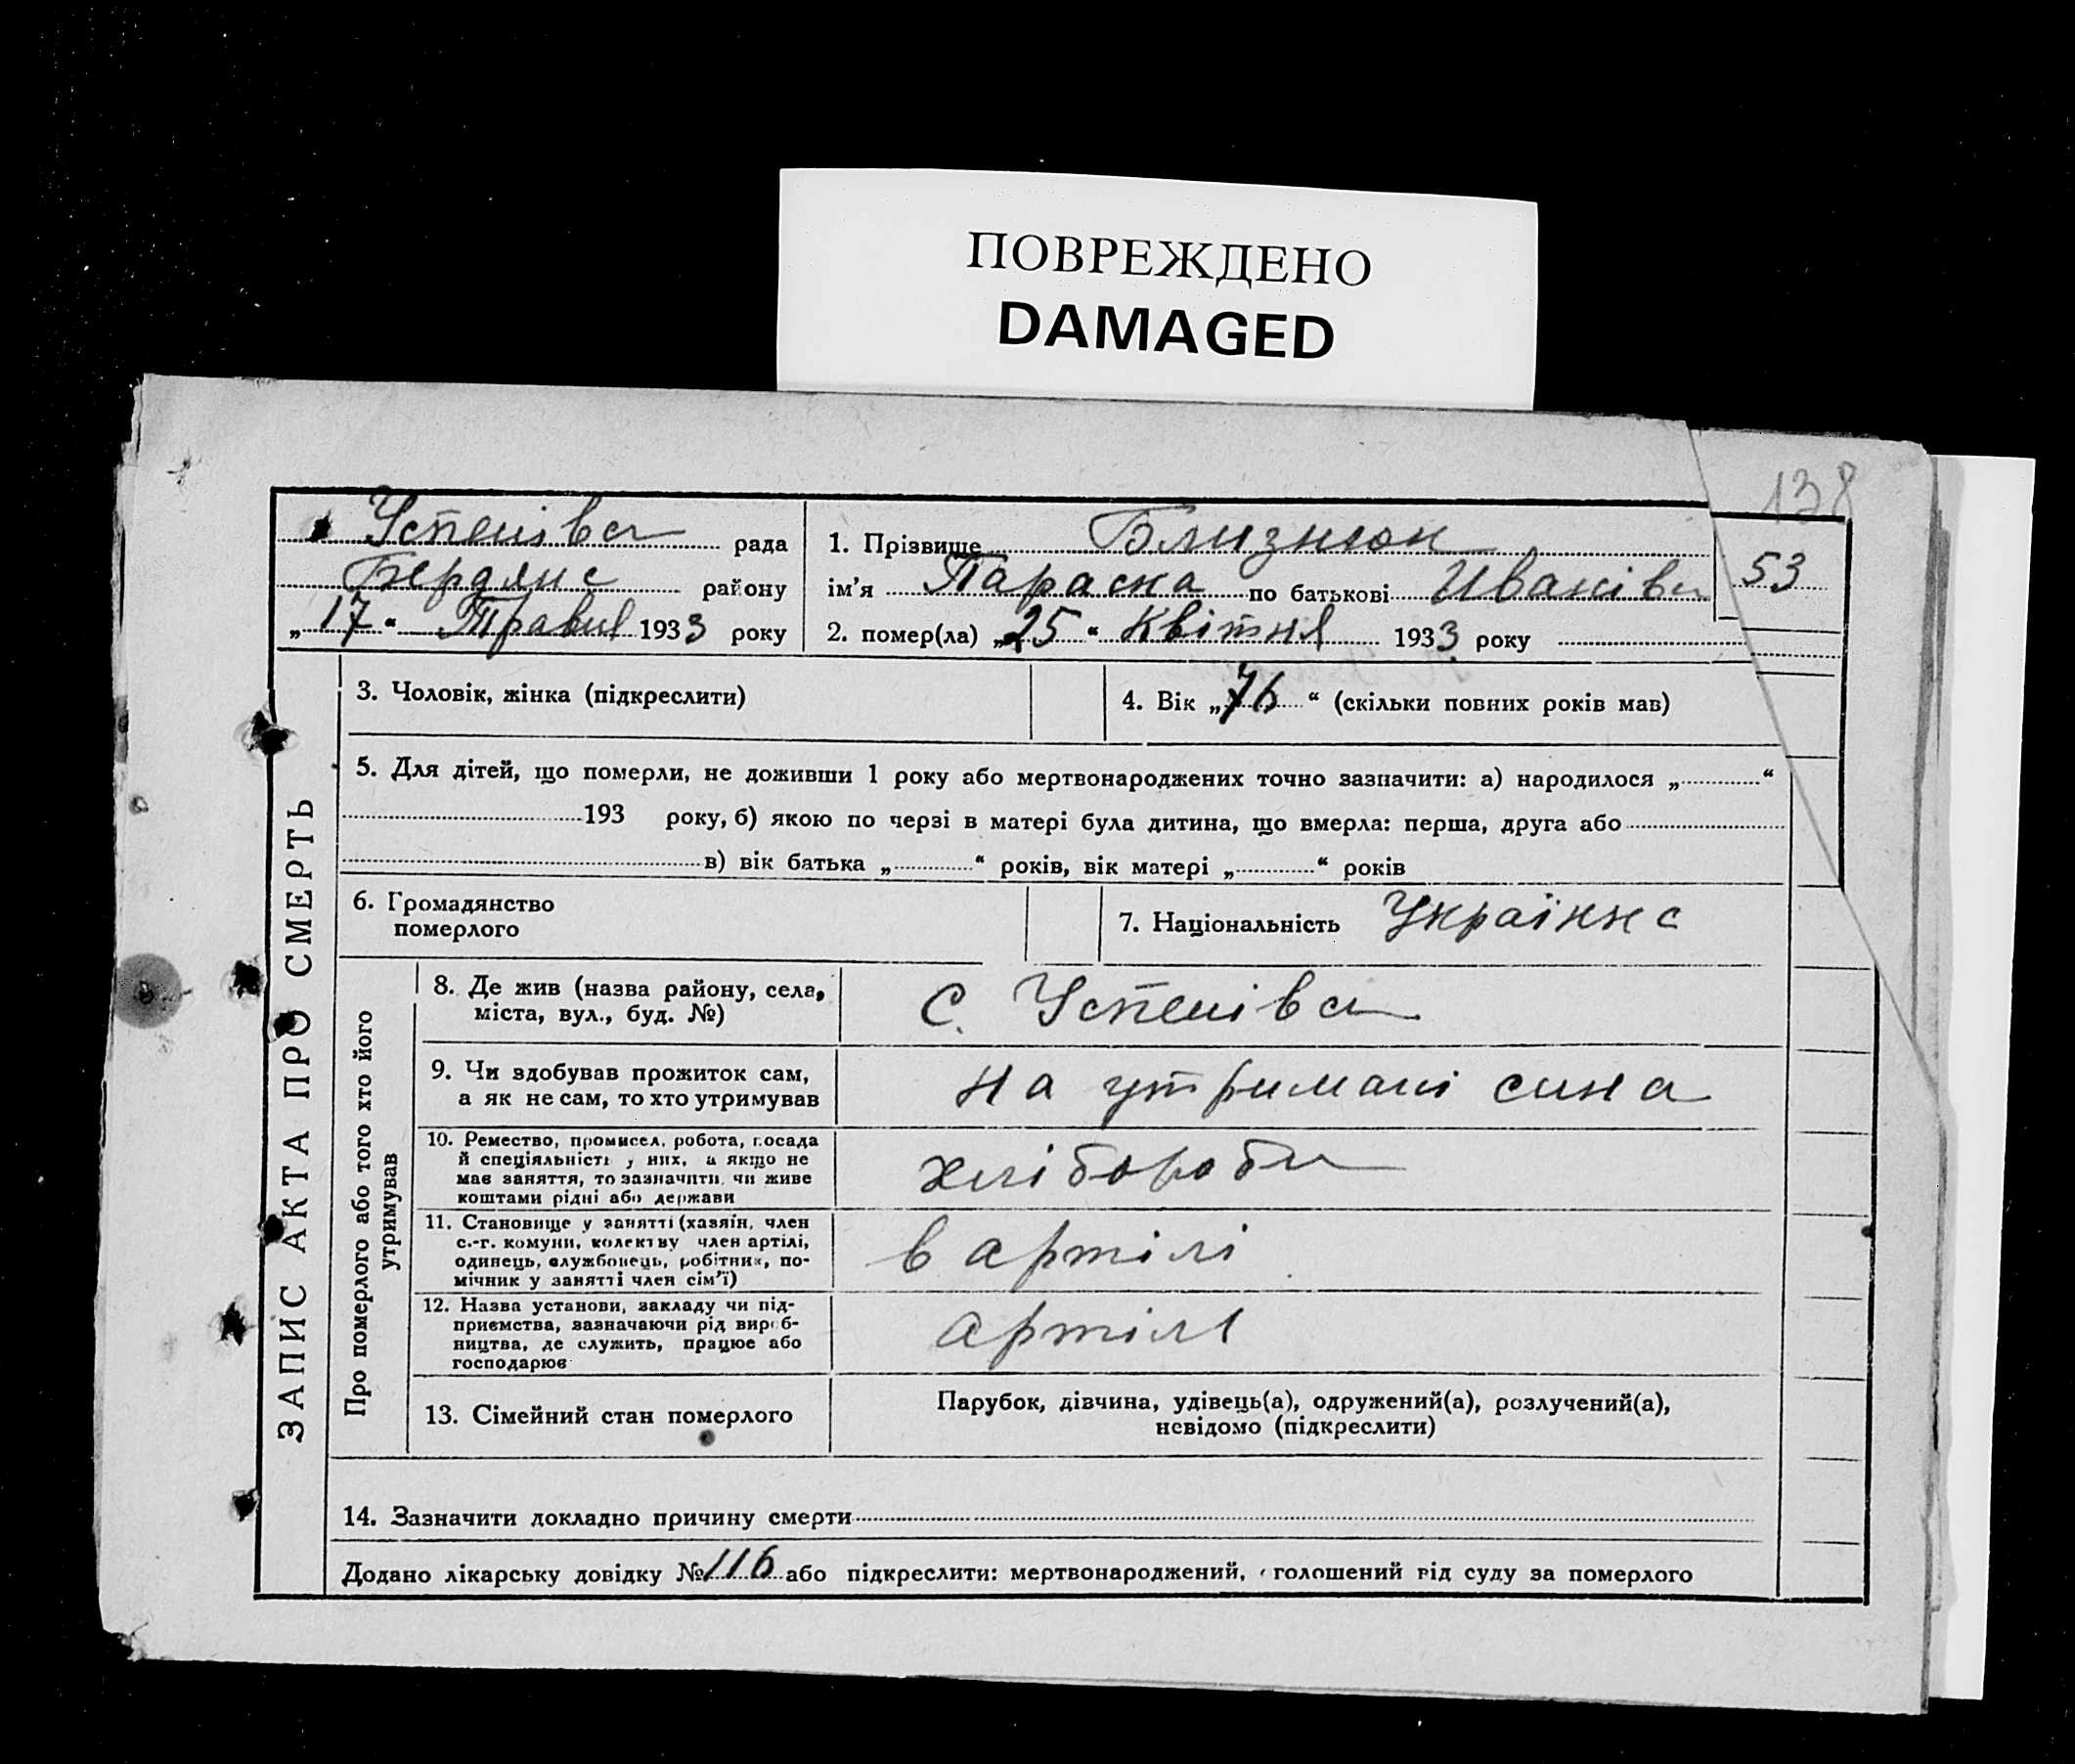 ПОВРЕЖДЕНО
DAMAGED
138
Успенівсь рада
Бердянс району
„17“ Травня 1933 року
1. Прізвище Близнюк
ім’я Параска по батькові Иванівн
2. помер(ла) „25“ Квітня 1933 року
53
ЗАПИС АКТА ПРО СМЕРТЬ
3. Чоловік, жінка (підкреслити)
4. Вік „76“ (скільки повних років мав)
5. Для дітей, що померли, не доживши 1 року або мертвонароджених точно зазначити: а) народилося „ “
193 року, б) якою по черзі в матері була дитина, що вмерла: перша, друга або
в) вік батька „ “ років, вік матері „ “ років
6. Громадянство
померлого
7. Національність Українкс
Про померлого або того хто його
утримував
8. Де жив (назва району, села,
міста, вул., буд. №)
с. Успенівка
9. Чи здобував прожиток сам,
а як не сам, то хто утримував
на утримані сина
10. Ремество, промисел, робота, посада
й спеціяльність у них, а якщо не
має заняття, то зазначити, чи живе
коштами рідні або держави
хлібороби
11. Становище у занятті (хазяїн, член
с.-г. комуни, колективу член артілі,
одинець, службонець, робітник, по-
мічник у занятті член сім’ї)
в артілі
12. Назва установи, закладу чи під-
приємства, зазначаючи рід вироб-
ництва, де служить, працює або
господарює
артілі
13. Сімейний стан померлого
Парубок, дівчина, удівець(а), одружений(а), розлучений(а),
невідомо (підкреслити)
14. Зазначити докладно причину смерти
Додано лікарську довідку № 116 або підкреслити: мертвонароджений, голошений від суду за померлого